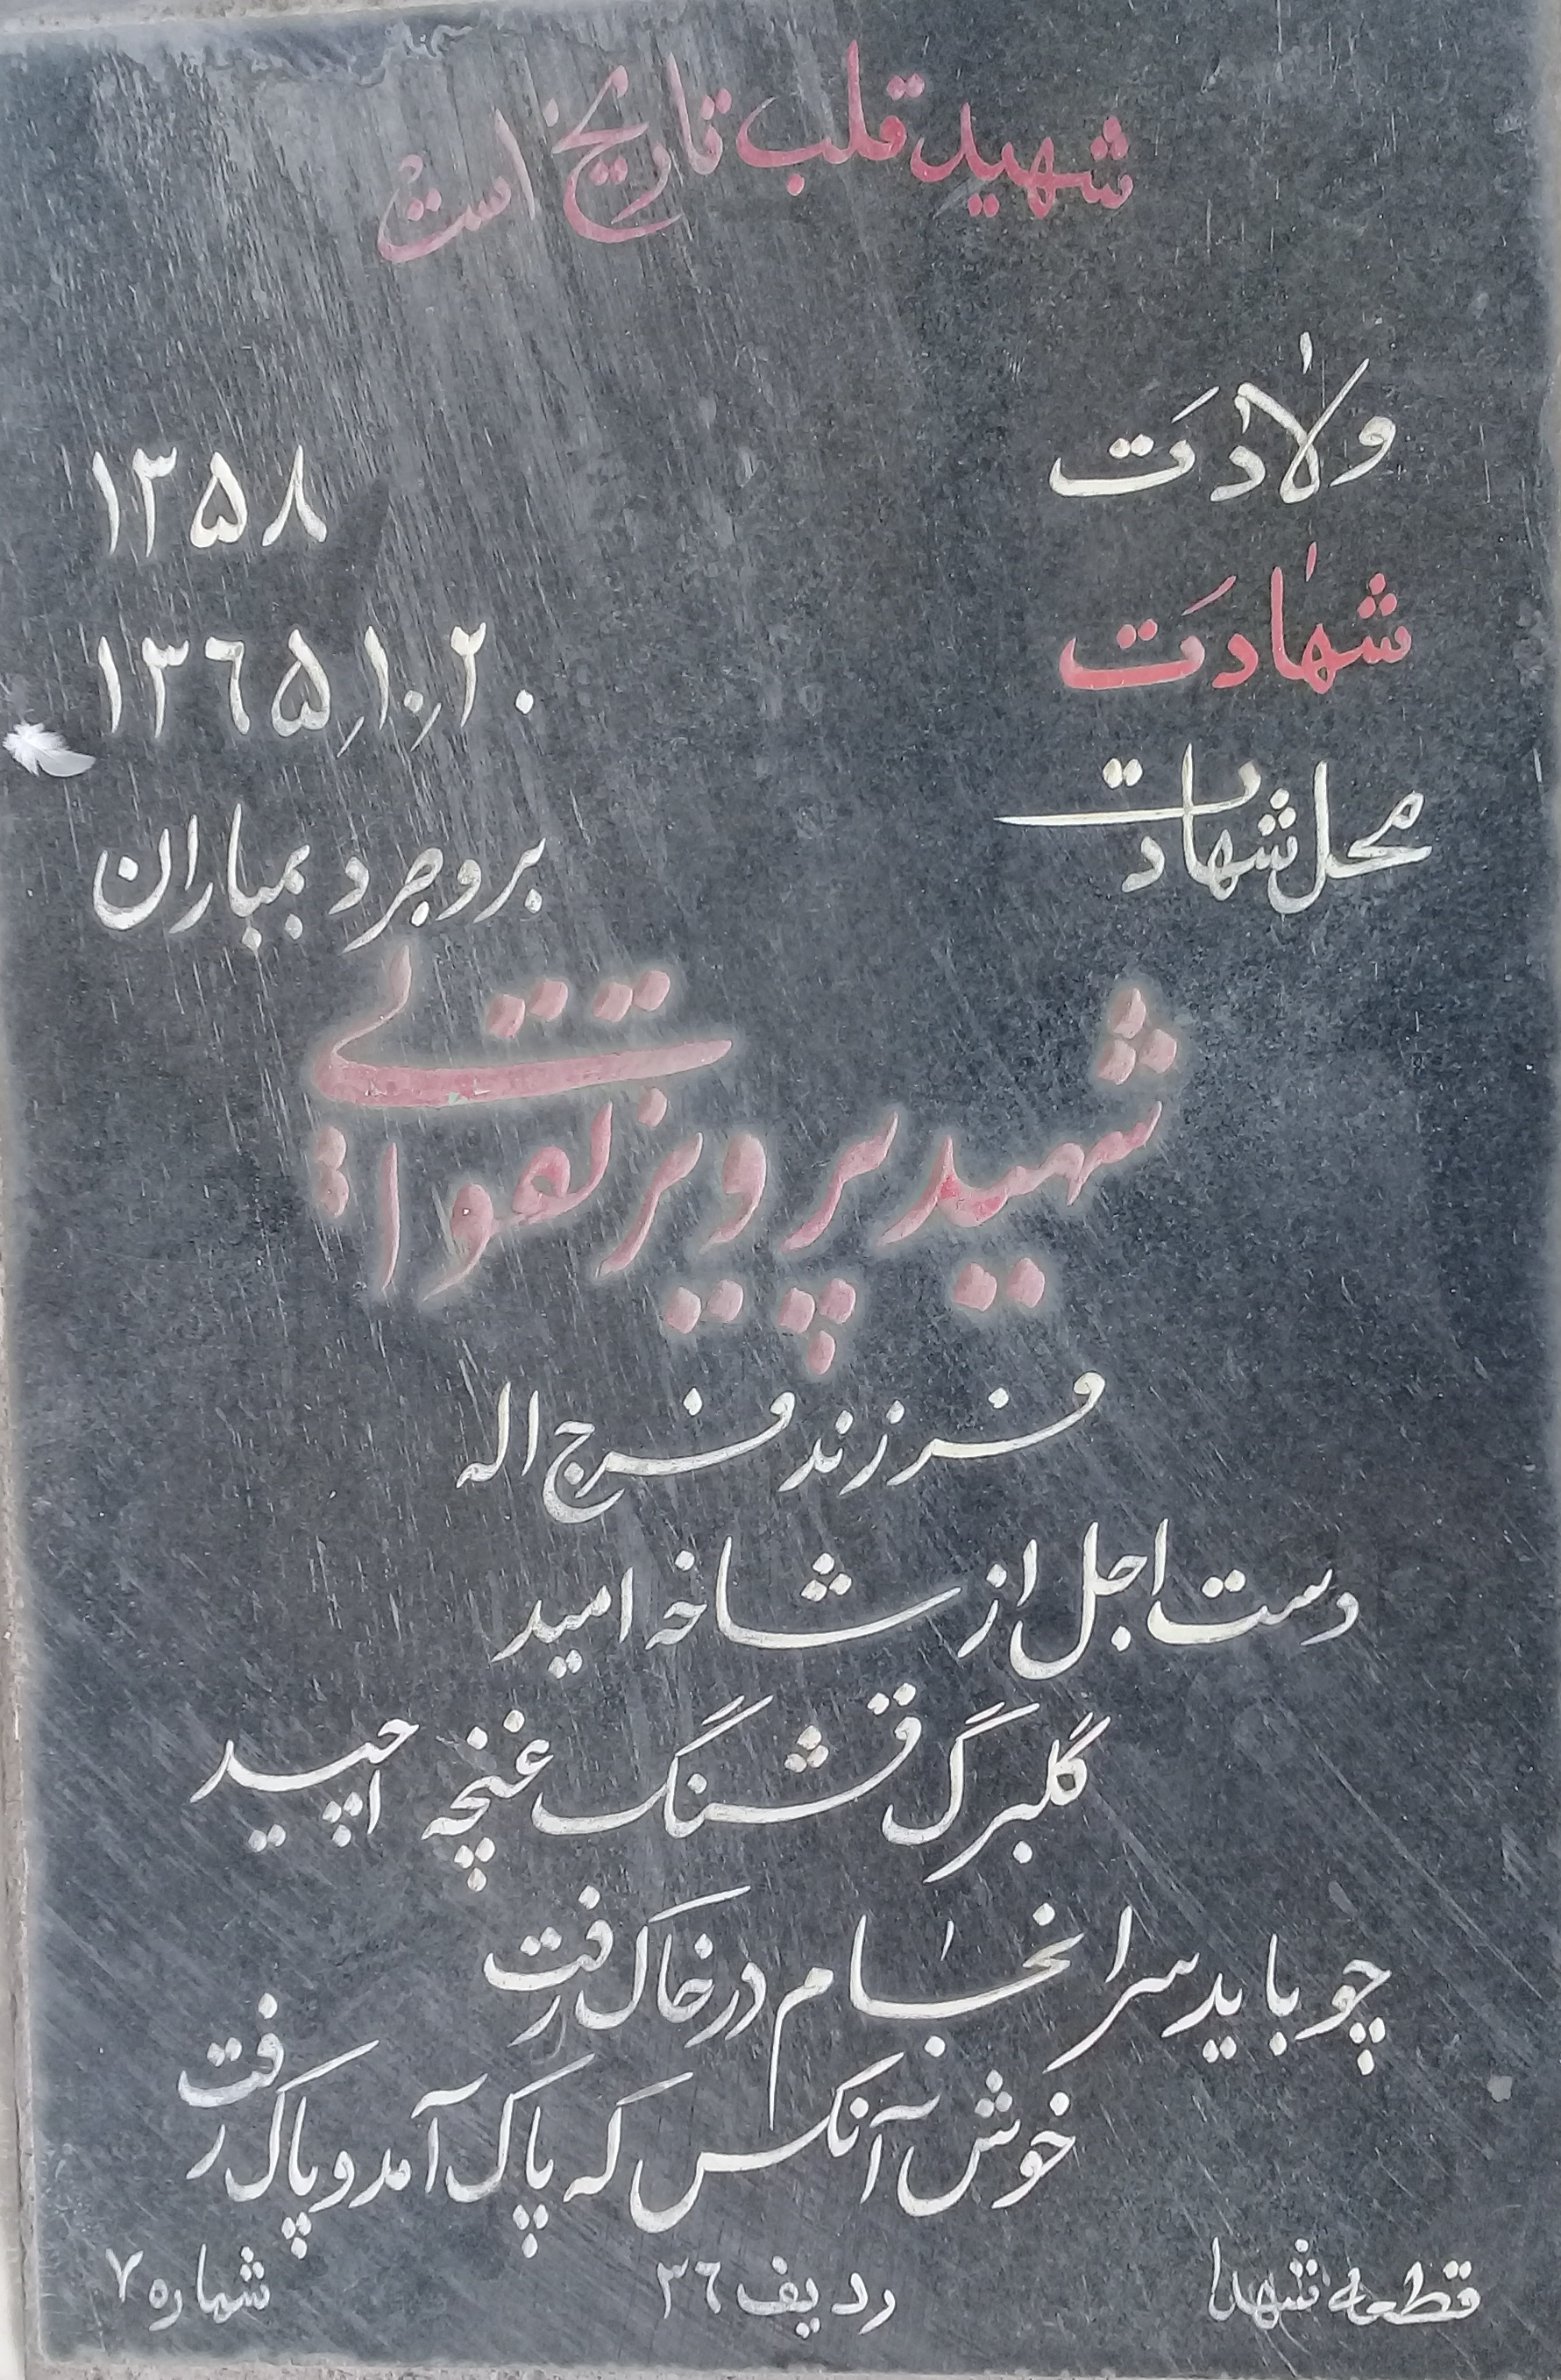 شهید قلب تاریخ است
ولادت ۱۳۵۸
شهادت ۱۳۶۵,۱۰,۲۰
محل شهادت بروجرد بمباران
شهید پرویز تقوایی
فرزند فرج اله
دست اجل از شاخه امید
گلبرگ قشنگ غنچه ا چید
چو باید سرانجام در خاک رفت
خوش آنکس که پاک آمد و پاک رفت
قطعه شهدا ردیف ۳۶ شماره ۷